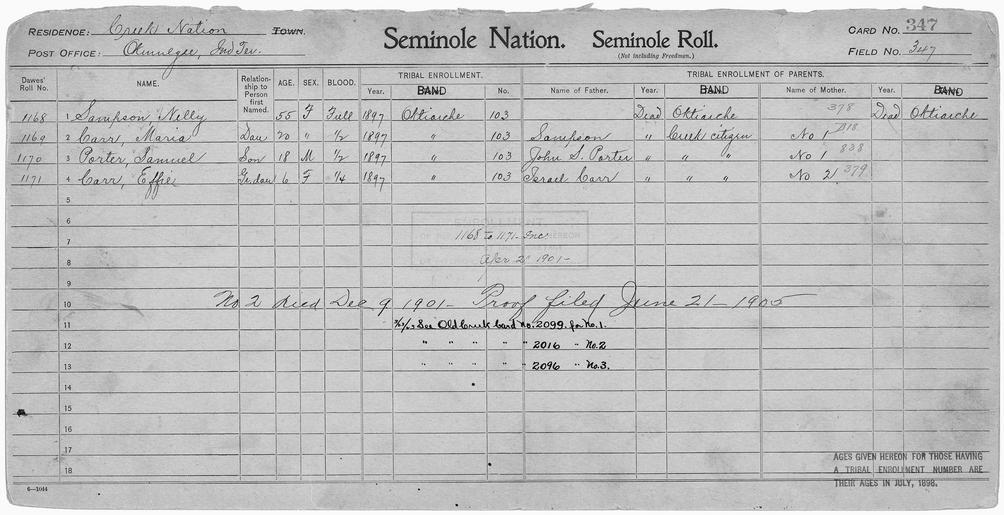 RESIDENCE: Creek Nation TOWN. Seminole Nation. Seminole Roll. CARD NO. 347
POST OFFICE: Okmulgee, Ind Ter. (Not including Freedmen.) FIELD NO. 347
Dawes' Roll No. NAME. Relationship to Person first Named. AGE. SEX. BLOOD. TRIBAL ENROLLMENT. TRIBAL ENROLLMENT OF PARENTS.
Year. BAND No. Name of Father. Year. BAND Name of Mother. Year. BAND
1168 1 Sampson, Nelly 55 F Full 1897 Ottiarche 103 Dead Ottiarche 378 Dead Ottiarche
1169 2 Carr, Maria Dau 20 " 1/2 1897 " 103 Sampson " Creek citizen No 1
1170 3 Porter, Samuel Son 18 M 1/2 1897 " 103 John S. Porter " " " No 1 838
1171 4 Carr, Effie Gr. dau 6 F 1/4 1897 " 103 Israel Carr " " " No 2 379
5
6 ENROLLMENT
7 1168 to 1171 - Inc HEREON
8 Apr 2 1901-
9
10 No. 2 died Dec 9 1901- Proof filed June 21-1905
11 See Old Creek Card No. 2099. for No. 1.
12 " " " " " 2016 " No. 2
13 " " " " " 2096 " No. 3.
14
15
16
17
18
AGES GIVEN HEREON FOR THOSE HAVING
A TRIBAL ENROLLMENT NUMBER ARE
THEIR AGES IN JULY, 1898.
6-1044